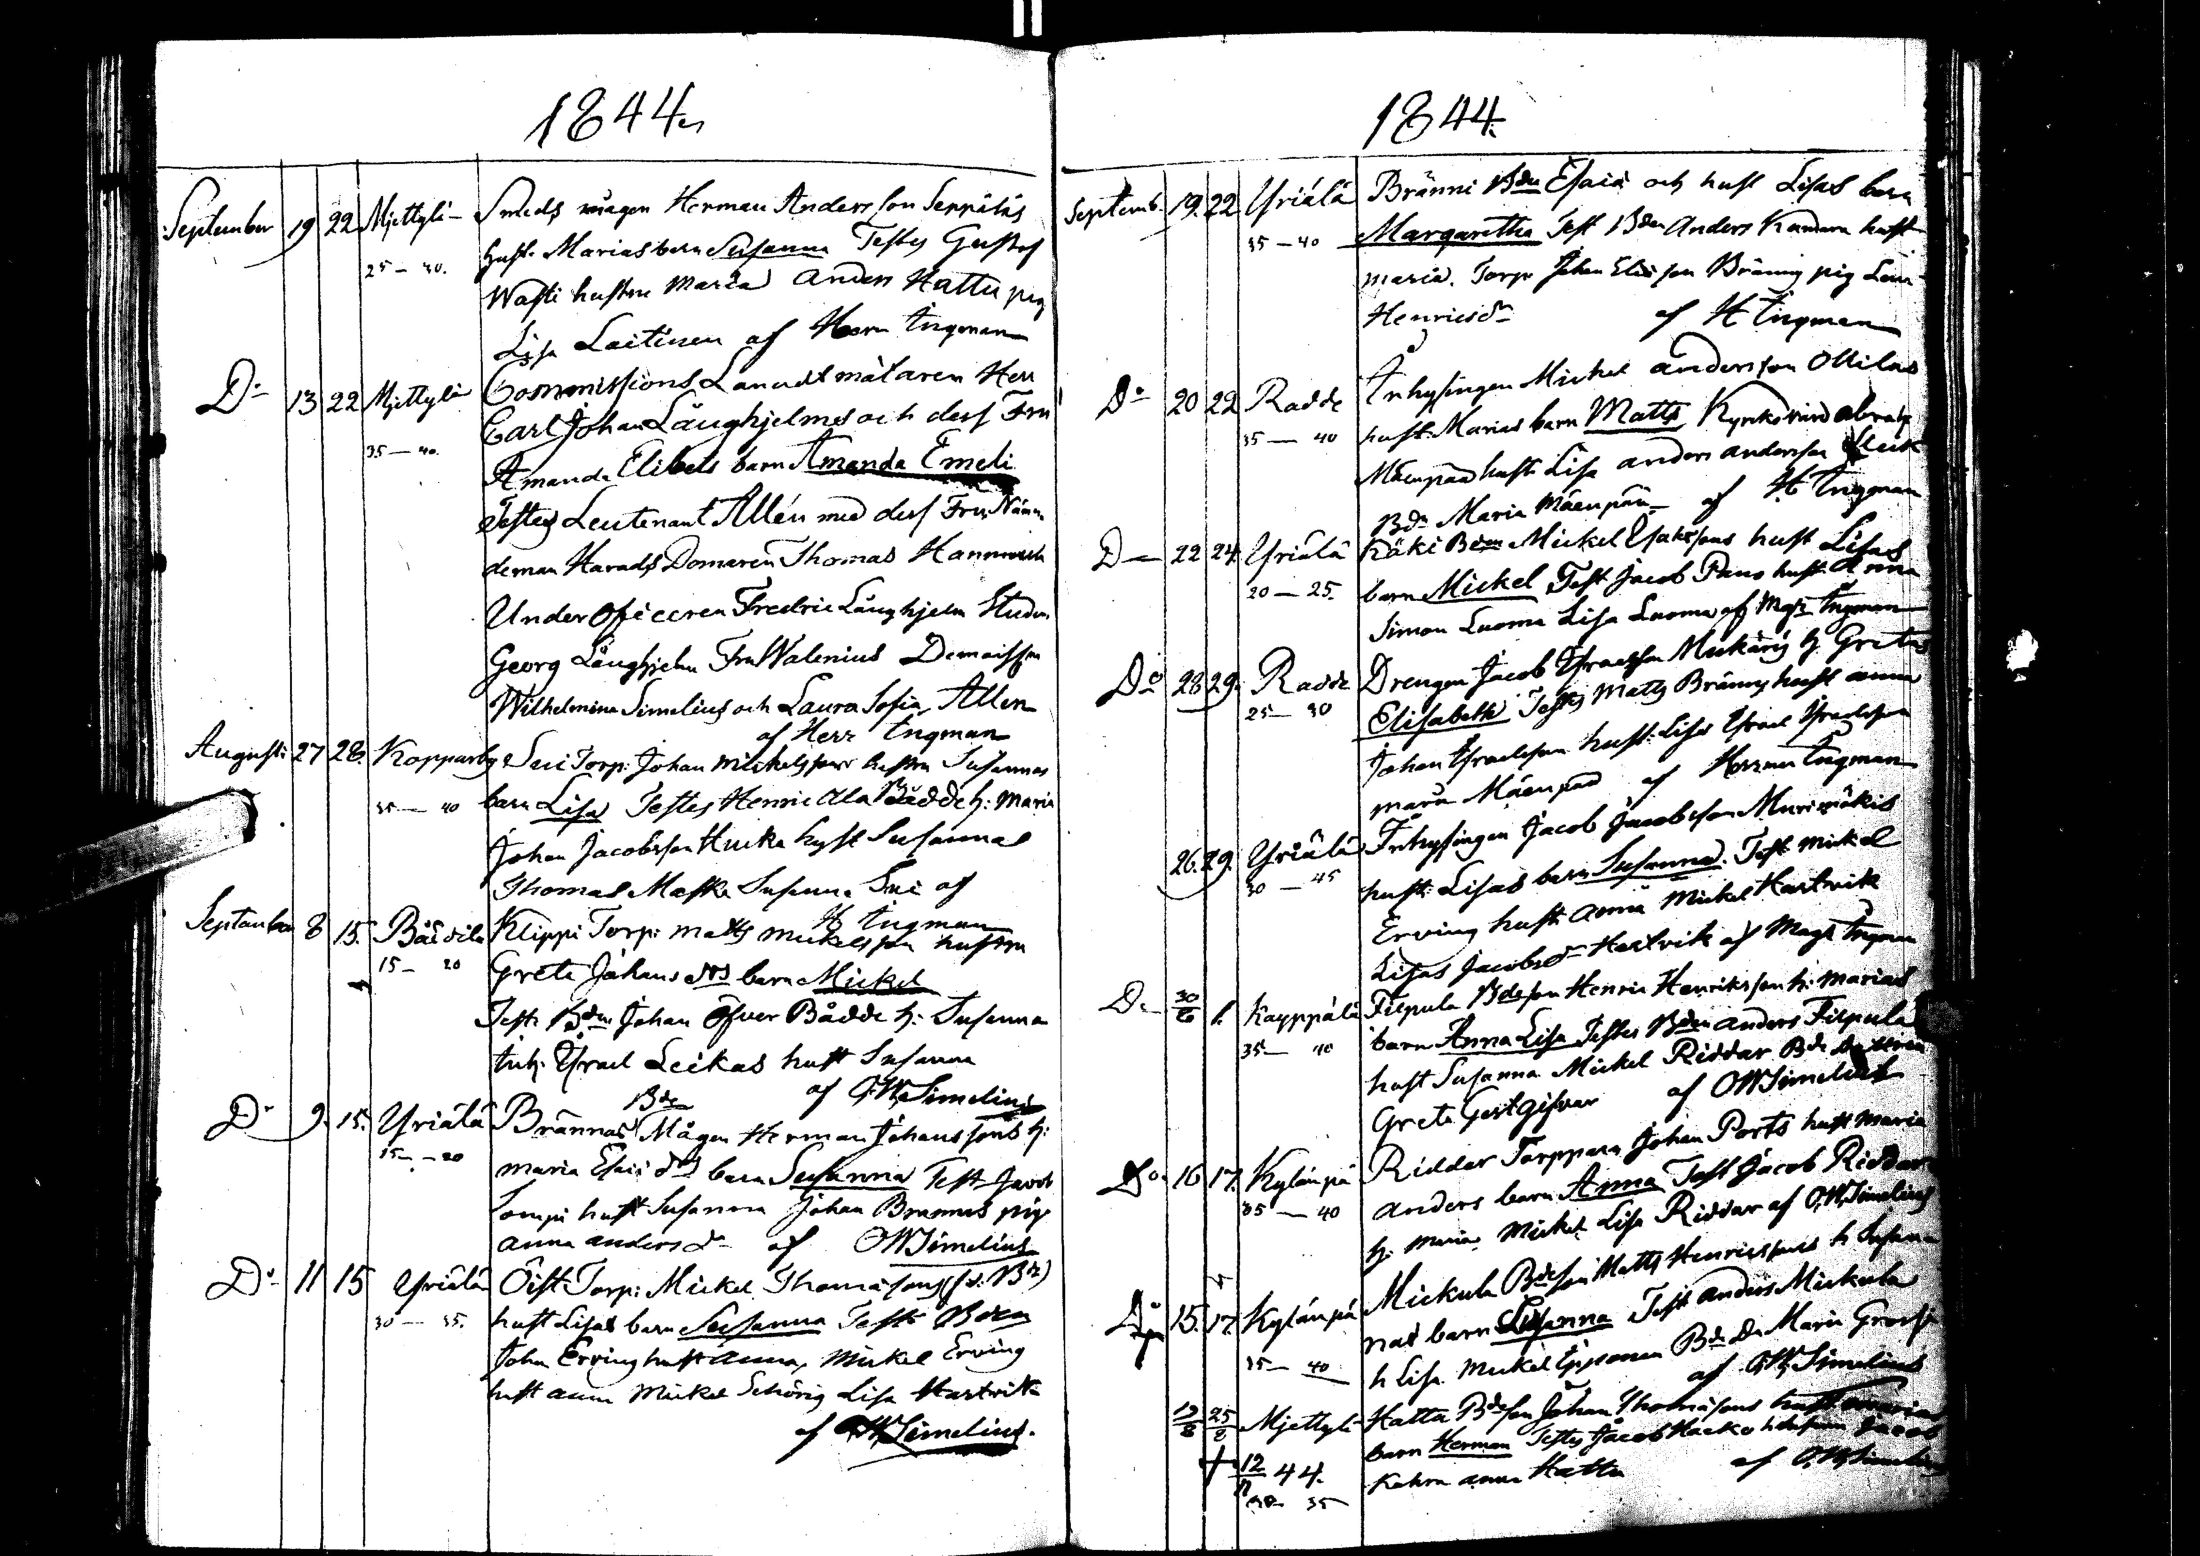 1844
September 19 22 Mjettylä Smeds mågen Herman Andersson Seppäläs
25 — 30. hust. Marias barn Susanna Testes Gustaf
Wasti hustru Maria Anders Hattu pig
Lisa Laitinen af Herr Ingman
Do 13 22 Mjettylä Commissions Landtmätaren Herr
Carl Johan Långhjelms och dess Fru
35 — 40. Amanda Elibets barn Amanda Emeli
Testes Leutenant Allén med dess Fru
deman Harads Domaren Thomas
Under Officeren Fredric Långhjelm
Georg Långhjelm Fru Walenius
Wilhelmina Simelius och Laura Sofia Allen
af Herr Ingman
Augusti 27 28. Kopparby Sui Torp: Johan Mickelsson hustru Susannas
35 — 40 barn Lisa Testes Henric Ala Bådde h: Maria
Johan Jacobsson hust Susanna
Thomas Maska Susanna Sui af
H Ingman
September 8 15. Klippi Torp: Matts Mickelsson hustru
15 — 20 Greta Johans drs barn Mickel
Test: Bdn Johan Öfver Bådde h: Susanna
Inh: Israel Leikas hust Susanna
af O.W. Simelius
Do 9. 15. Yriälä Brännas Bde Mågen Herman Johanssons h:
15 — 20 Maria Esai drs barn Susanna Test Jacob
hust Susanna Johan Brännus pig
Anna Anders dr af OWSimelius
Do 11 15 Yriälä Öist Torp: Mickel Thomasons
30 — 35. hust Lisas barn Susanna Test
John Erving hust Anna, Mickel Erving
hust Anna Mickel Lisa Hartvik
af OWSimelius.
1844.
Septemb. 19. 22 Yriälä Bränni Bdn Esaia och hust Lisas barn
35 — 40 Margaretha Test Bdn Anders hust
Maria. Torp Johan Eliasson Bränny pig
Henricsdr af H Ingman
Do 20 22 Radde Inhysingen Michel Andersson Ollilas
35 — 40 hust Marias barn Matts, Kyrkovärd
Mäenpää hust: Lisa Anders Andersson
Bdr Maria Mäenpää af H Ingman
D 22 24 Yriälä Käki Bdn Mickel hust Lisas
20 — 25. barn Mickel Test Jacob hust Anna
Simon Luoma Lisa Luoma af Mag Ingman
Do 28 29. Radde Drengen Jacob Israelsson h. Gretas
25 — 30 Elisabeth Testes Matts Bränny hust Anna
Johan Israelsson hust: Lisa Israel Israelsson
Maria Mäenpää af Herr Ingman
26. 29. Yriälä Inhysingen Jacob Jacobsson
30 — 45 hust: Lisas barn Susanna. Test Mickel
Erving hust Anna Mickel Hartvik
Lisas Jacobsdr Hartvik af Mag Ingman
D 30/6 1. Kayppälä Filpula Bdeson Henric Henriksson h: Marias
35 — 40 barn Anna Lisa Testes Bdn Anders Filpula
hust Susanna Mickel Riddar Bde
Greta Gestgifvar af OWSimelius
Do 16 17. Kylänpä Riddar Torpparn Johan Ports hust Maria
35 — 40 Anders barn Anna Test Jacob Riddar
h. Maria Mickel Lisa Riddar af O.W. Simelius
Do 15. 17. Kylänpä Mickula Bdeson Matts Henricssons h Susan-
nas barn Susanna Test Anders Mickula
35 — 40 h Lisa Mickel Bde Dr Maria
af O.W. Simelius
12/8 25/8 Mjettylä Hatta Bdeson Johan Thomassons hust Marias
barn Herman Testes Jacob
+ 12/11 44. Anna Hattu af O.W. Simelius
30 — 35